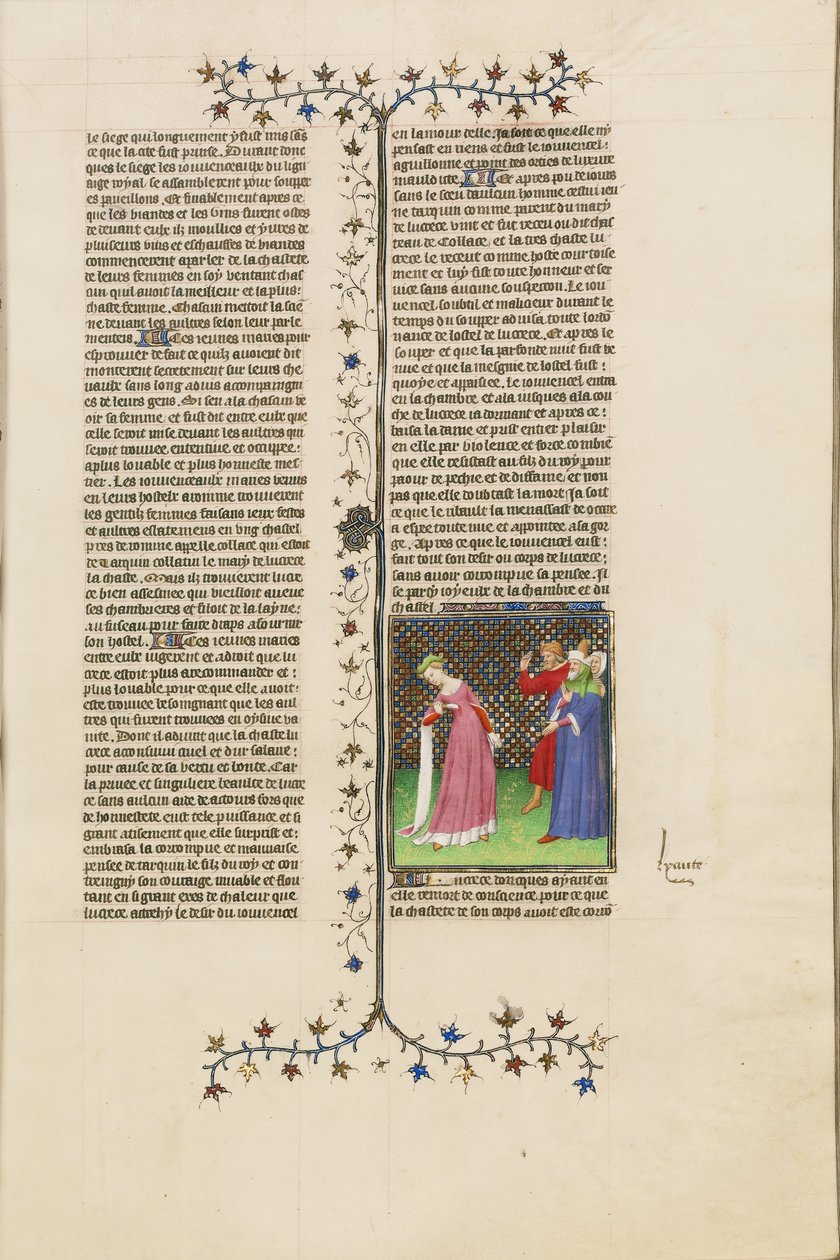 le siege qui longuement y fust mis sãs
ce que la cite fust prinse. Durant donc
ques le siege les iouuenceaulx du lign
aige royal se assamblerent pour soupper
es paueillons. Et finablement apres ce
que les viandes et les vins furent ostes
de deuant eulx ilz moullies et yures de
pluiseurs vins et eschauffes de viandes
commencerent a parler de la chastete
de leurs femmes en soy ventant chas
cun quil auoit la meilleur et la plus
chaste femme. Chascun mettoit la sie
ne deuant les aultres selon leur parle
mens. Ces ieunes maries pour
esprouuer de fait ce quilz auoient dit
monterent secretement sur leurs che
uaulx sans long aduis accompaingni
es de leurs gens. Si sen ala chascun ve
oir sa femme et fust dit entre eulx que
celle seroit mise deuant les aultres qui
seroit trouuee ententiue et occuppee
a plus louable et plus honneste mes
tier. Les iouuenceaulx maries venus
en leurs hostelx a romme trouuerent
les gentilz femmes faisans ieux festes
et aultres esbatemens en vng chastel
pres de romme appelle collace qui estoit
de Tarquin collatin le mary de lucrece
la chaste. Mais ilz trouuerent lucre
ce bien assesinee qui vieilloit aueuc
ses chambrieres et filoit de la layne
au fuseau pour faire draps a fournir
son hostel. Ces ieunes maries
entre eulx iugerent et a droit que lu
crece estoit plus a recommander et
plus louable pour ce que elle auoit
este trouuee besoingnant que les aul
tres qui furent trouuees en oyseuse va
nite. Dont il aduint que la chaste lu
crece aconsuiui cruel et dur salaire
pour cause de sa vertu et bonte. Car
la priuee et singuliere beaulte de lucre
ce sans aulcun aide de actours fors que
de honnestete eust tele puissance et si
grant atisement que elle surprist et
embrasa la corrompue et mauuaise
pensee de tarquin le filz du roy et con
traingny son couraige muable et flou
tant en si grant exes de chaleur que
lucrece attrehy le desir du iouuencel
en lamour delle. Ja soit ce que elle ny
pensast en riens et fust le iouuencel
aguillonne et point des orties de luxure
mauldicte. Et apres pou de iours
sans le sceu daulcun homme cestui ieu
ne tarquin comme parent du mary
de lucrece vint et fut receu ou dit chas
teau de Collace et la tres chaste lu
crece le receut comme hoste courtoise
ment et luy fist toute honneur et ser
uice sans aucune souspecon. Le iou
uencel soubtil et malicieux durant le
temps du soupper aduisa toute lordõ
nance de lostel de lucrece. Et apres le
soupper et que la parfonde nuit fust ve
nue et que la mesgnie de lostel fust
quoye et appaisee. Le iouuencel entra
en la chambre et ala iusques a la cou
che de lucrece ia dormant et apres ce
baisa la dame et prist entier plaisir
en elle par violence et force combiẽ
que elle resistast au filz du roy pour
paour de pechie et de diffame et non
pas que elle doubtast la mort Ja soit
ce que le ribault la menassast de occire
a espee toute nue et appointee a sa gor
ge. Apres ce que le iouuencel eust
fait tout son desir ou corps de lucrece
sans auoir corrompue sa pensee. Il
se party ioyeux de la chambre et du
chastel.
Lucrece doncques ayant en
elle remort de conscience pour ce que
la chastete de son corps auoit este corrõ